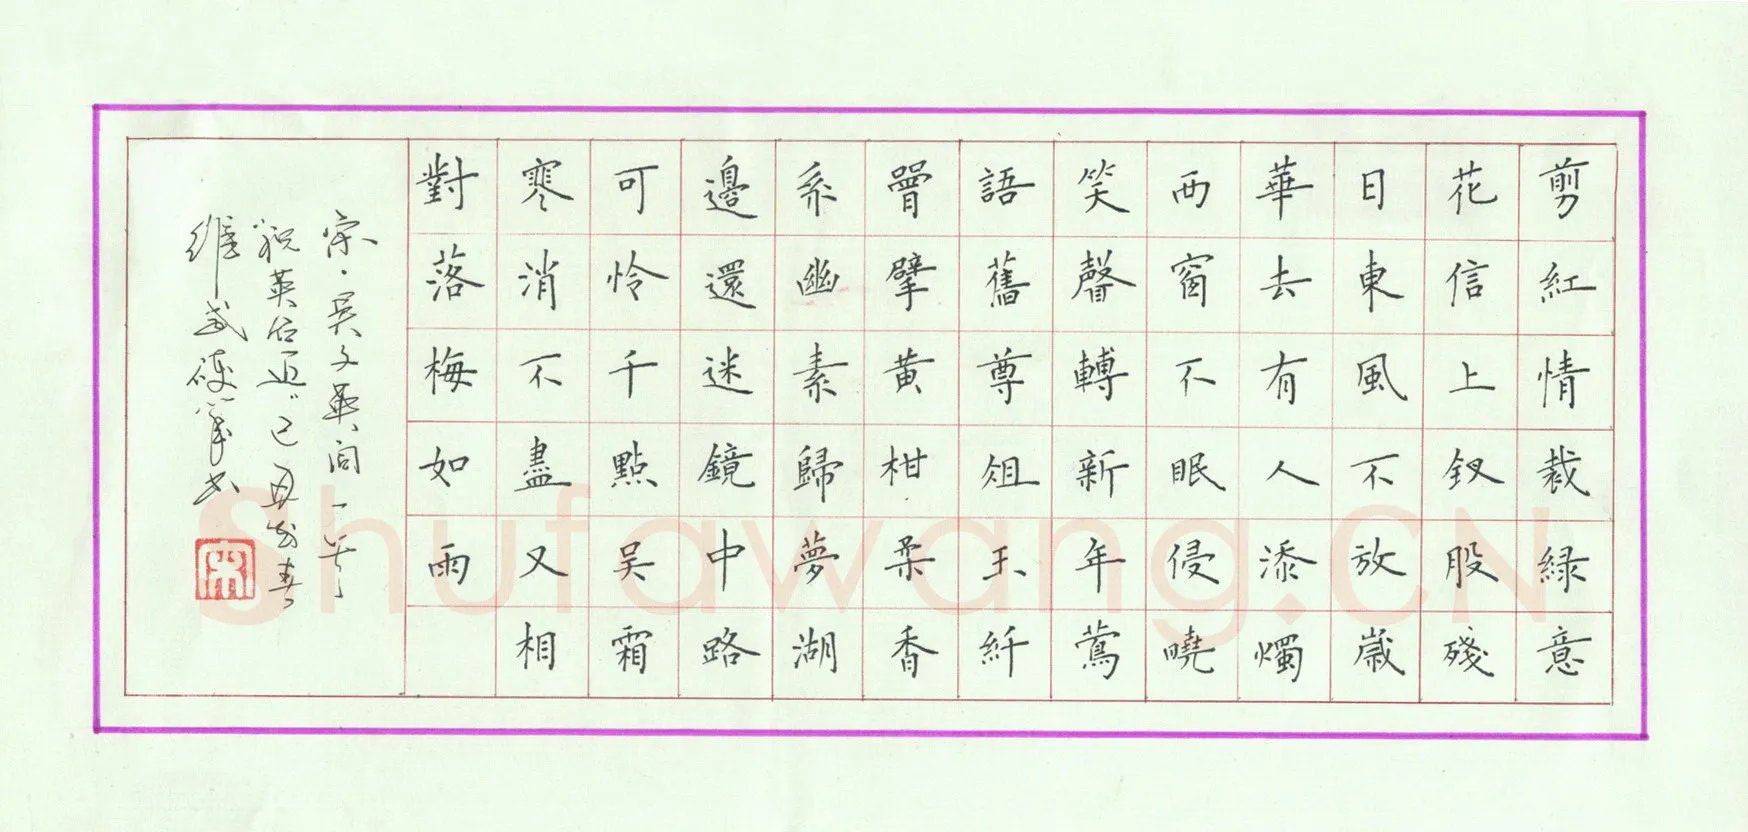 剪紅情裁緑意
花信上釵股殘
日東風不放歲
華去有人添燭
西窗不眠侵曉
笑聲轉新年鶯
語舊尊俎玉纤
曾擘黄柑柔香
系幽素歸夢湖
邊還迷鏡中路
可怜千點吴霜
寒消不盡又相
對落梅如雨
宋·吴文英词一首
祝英台近 己丑初春
維武硬筆书
Shufawang.CN